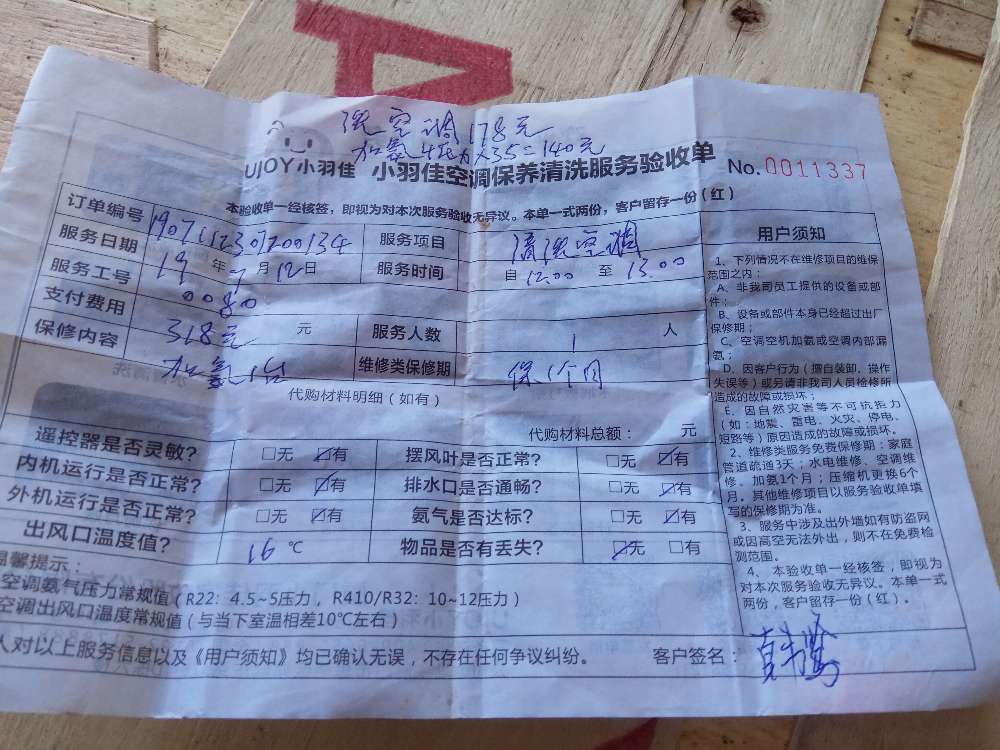 A
洗空调178元
加氨4压力×35=140元
UJOY小羽佳 小羽佳空调保养清洗服务验收单 No.0011337
本验收单一经核签，即视为对本次服务验收无异议。本单一式两份，客户留存一份（红）
订单编号 服务项目 清洗空调
服务日期 19年7月12日 服务时间 自12.00至13.00
服务工号 0080
支付费用 318元 元 服务人数 1 人
保修内容 加氨1台 维修类保修期 保1个月
代购材料明细（如有）
代购材料总额： 元
遥控器是否灵敏? □无 ☑有 摆风叶是否正常? □无 ☑有
内机运行是否正常? □无 ☑有 排水口是否通畅? □无 ☑有
外机运行是否正常? □无 ☑有 氨气是否达标? □无 ☑有
出风口温度值? 16 ℃ 物品是否有丢失? ☑无 □有
温馨提示：
空调氨气压力常规值（R22: 4.5~5压力，R410/R32: 10~12压力）
空调出风口温度常规值（与当下室温相差10℃左右）
人对以上服务信息以及《用户须知》均已确认无误，不存在任何争议纠纷。 客户签名：
用户须知
1、下列情况不在维修项目的维保
范围之内；
A、非我司员工提供的设备或部
件；
B、设备或部件本身已经超过出厂
保修期；
C、空调空机加氨或空调内部漏
氨；
D、因客户行为（擅自装卸，操作
失误等）或另请非我司人员检修所
造成的故障或损坏；
E、因自然灾害等不可抗拒力
（如：地震、雷电、火灾、停电、
短路等）原因造成的故障或损坏。
2、维修类服务免费保修期：家庭
管道疏通3天；水电维修、空调维
修、加氨1个月；压缩机更换6个
月。其他维修项目以服务验收单填
写的保修期为准。
3、服务中涉及出外墙如有防盗网
或因高空无法外出，则不在免费检
测范围。
4、本验收单一经核签，即视为
对本次服务验收无异议。本单一式
两份，客户留存一份（红）。